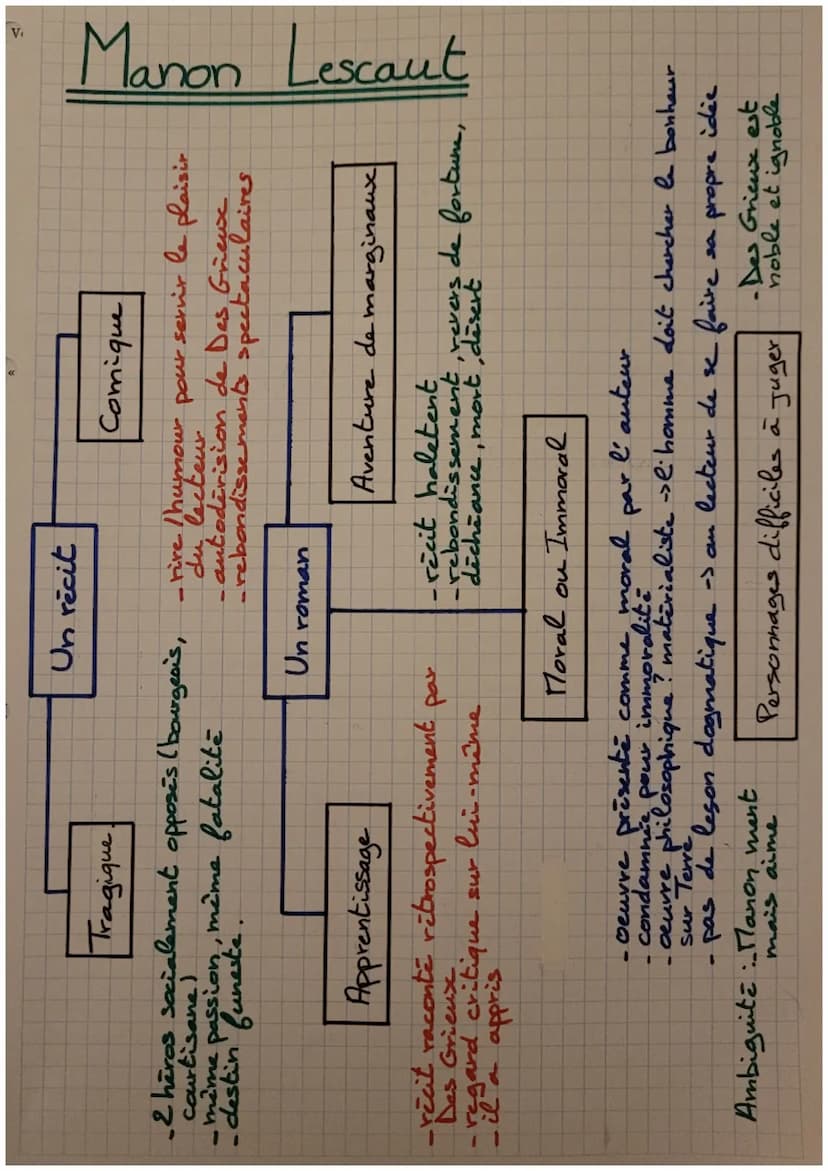 Manon Lescaut
Un récit
Tragique
Comique
- 2 héros socialement opposés (bourgeois,
courtisane)
- même passion, même fatalité
- destin funeste.
- rire/humour pour servir le plaisir
du lecteur
- autodérision de Des Grieux
- rebondissements spectaculaires
Un roman
Apprentissage
Aventure de marginaux
- récit raconté rétrospectivement par
Des Grieux
- regard critique sur lui-même
- il a appris
- récit haletent
- rebondissement, revers de fortune,
déchéance, mort, désert
Moral ou Immoral
- oeuvre présenté comme moral par l'auteur
- condamnée pour immoralité
- oeuvre philosophique? matérialiste -> l'homme doit chercher le bonheur
sur Terre
- pas de leçon dogmatique -> au lecteur de se faire sa propre idée
Personnages difficiles à juger
Ambiguité : - Manon ment
mais aime
- Des Grieux est
noble et ignoble